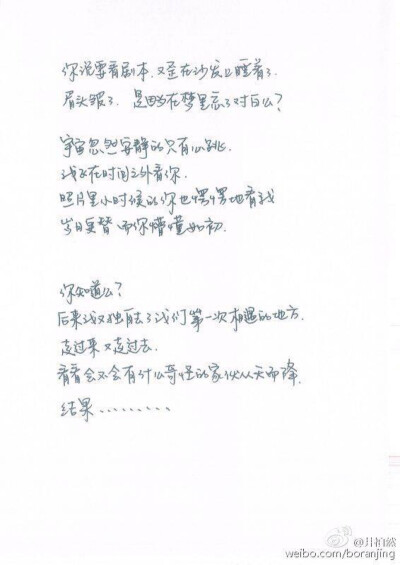 你说要看剧本,又歪在沙发上睡着了.
眉头皱了.是因为在梦里忘了对白么?
宇宙忽然安静的只有心跳.
我正在时间之外看你.
照片里小时候的你也愣愣地看我
岁月更替 而你懵懂如初.
你知道么?
后来我又独自去了我们第一次相遇的地方.
走过来又走过去.
看看会不会有什么奇怪的家伙从天而降.
结果.........
@井柏然
weibo.com/boranjing